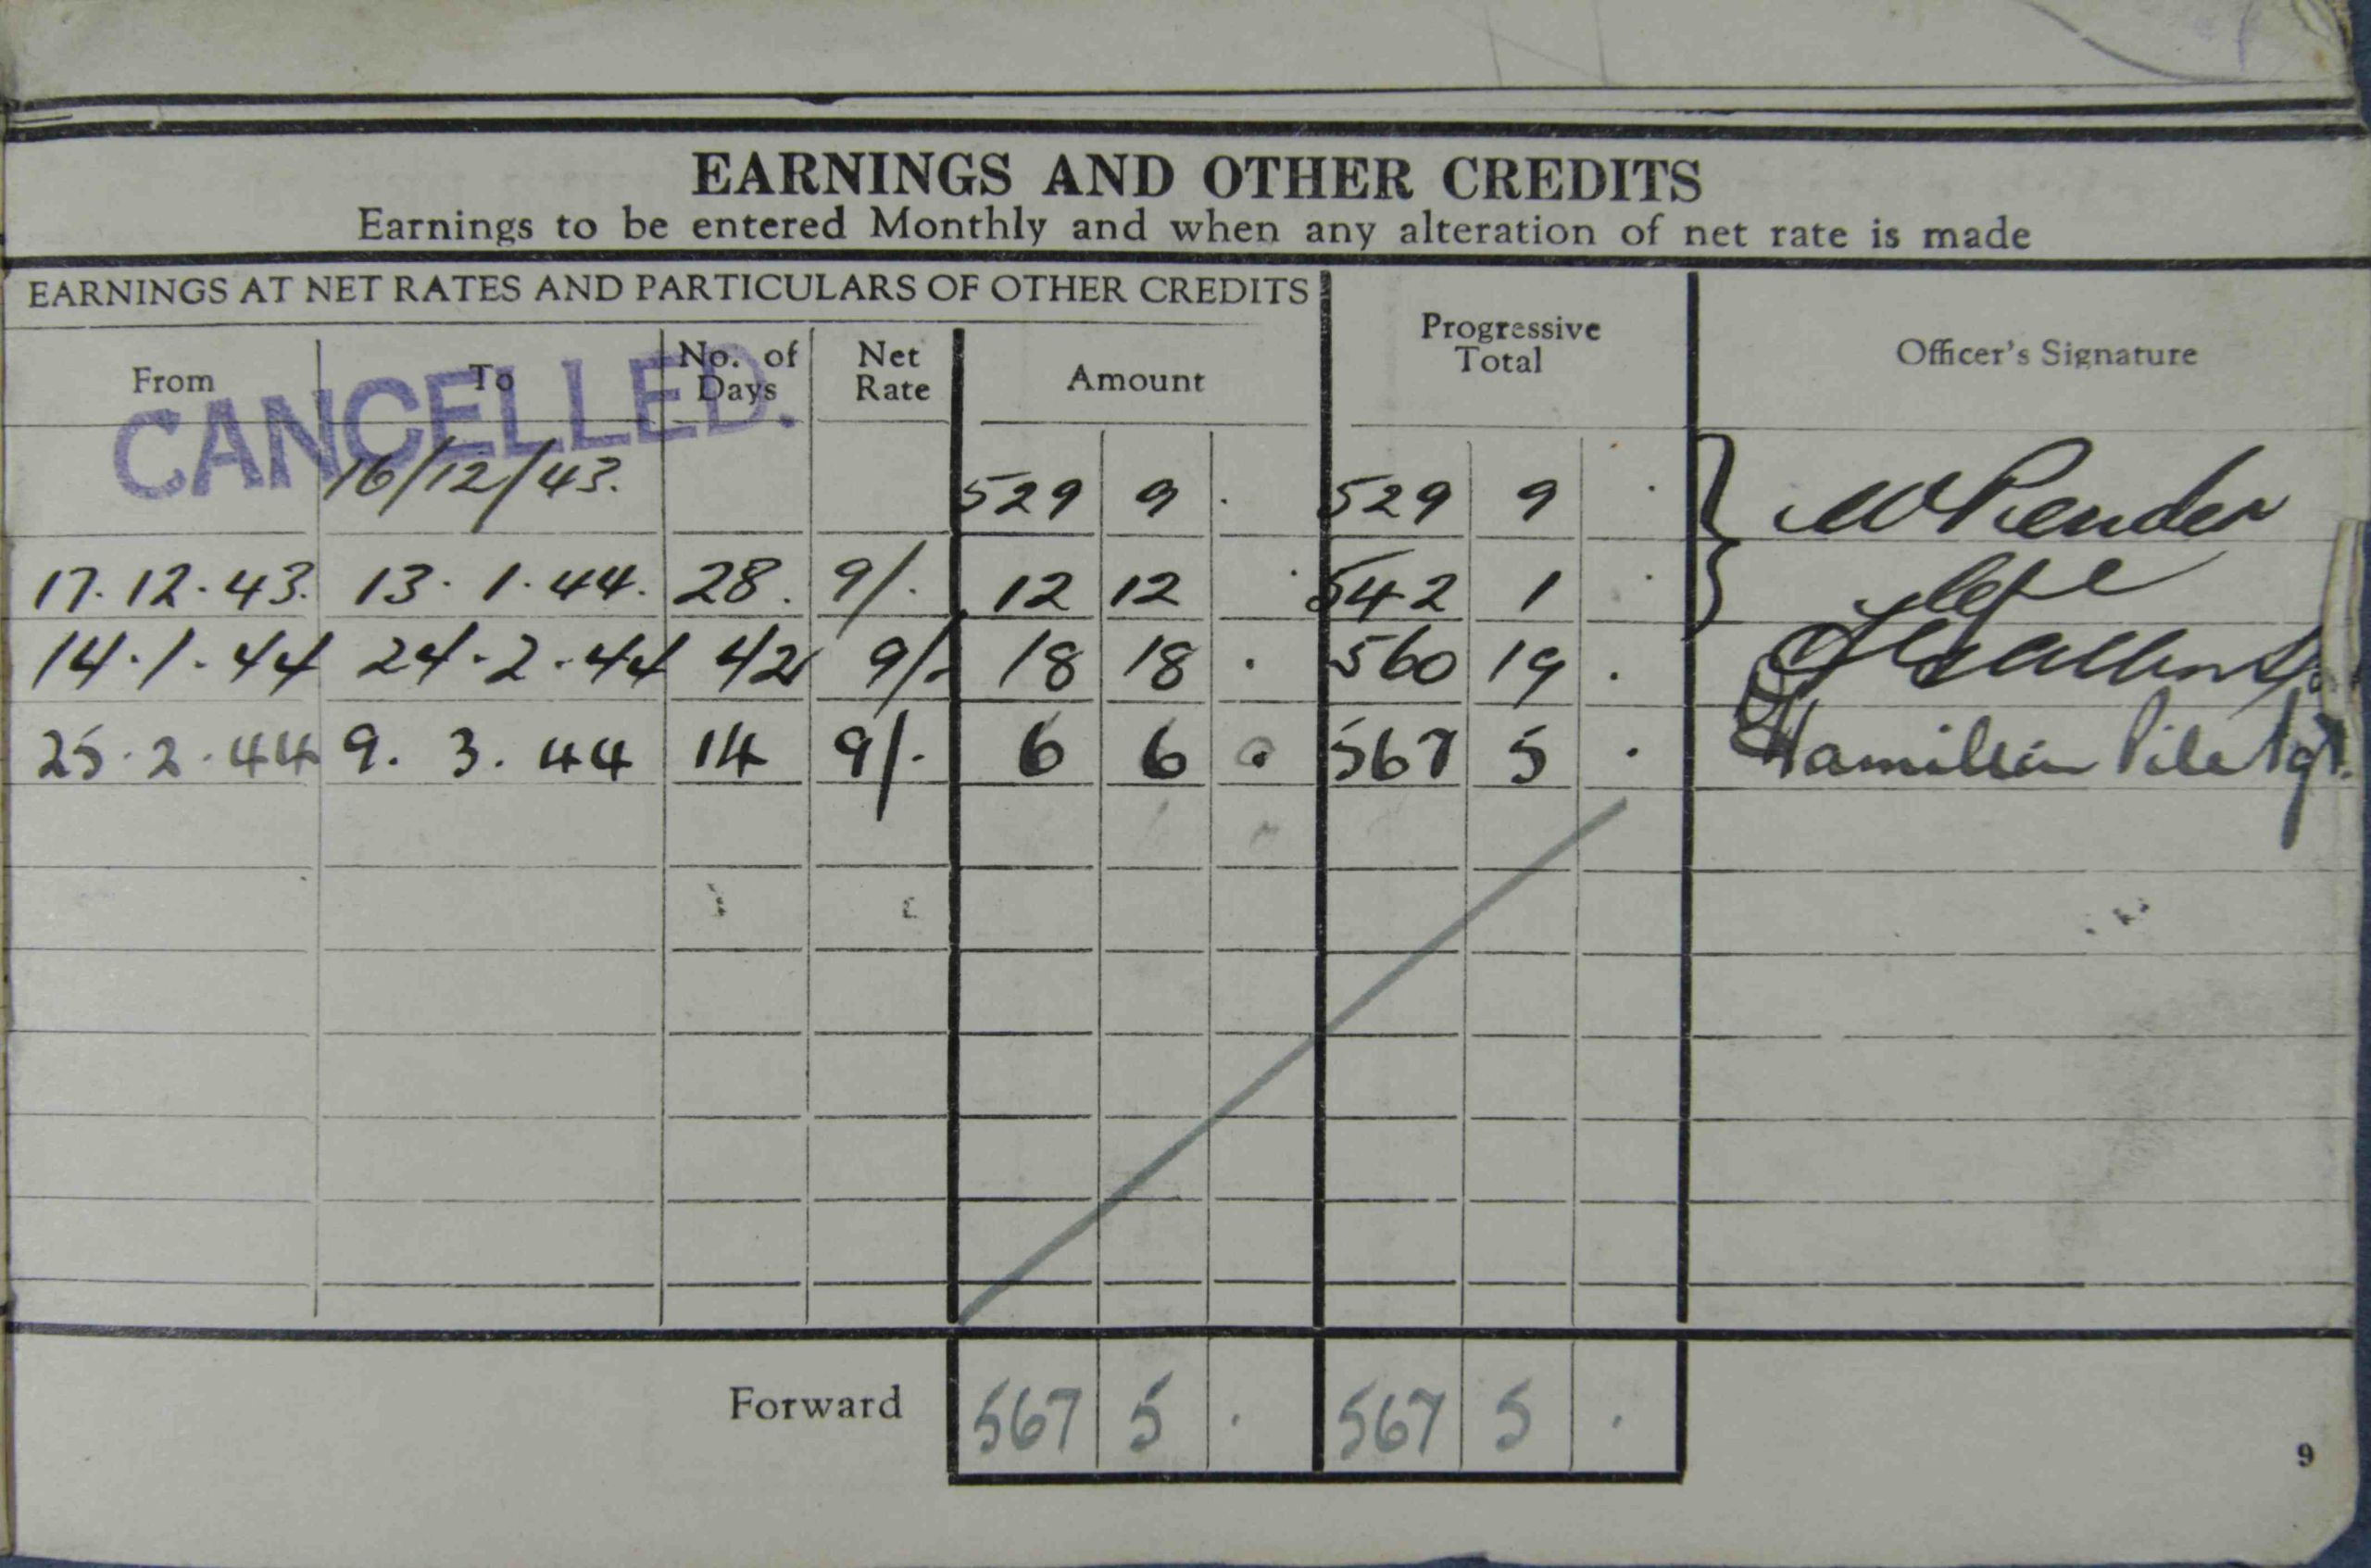 EARNINGS AND OTHER CREDITS
Earnings to be entered Monthly and when any alteration of net rate is made
EARNINGS AT NET RATES AND PARTICULARS OF OTHER CREDITS
Progressive Total
Officer's Signature
From To No. of Days Net Rate Amount
CANCELLED.
16/12/43. 529 9 . 529 9 .
17.12.43. 13.1.44. 28. 9/. 12 12 . 542 1 .
14.1.44 24.2.44 42 9/. 18 18 . 560 19 .
25.2.44 9.3.44 14 9/. 6 6 . 567 5 . Hamilton
Forward 567 5 . 567 5 .
9